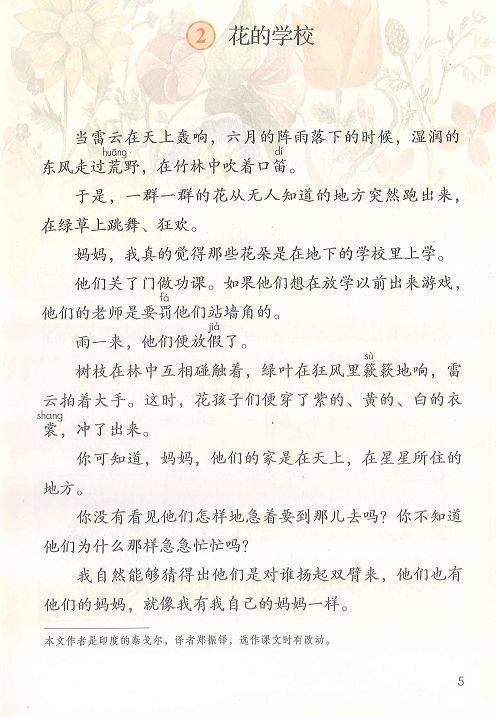 2 花的学校
当雷云在天上轰响，六月的阵雨落下的时候，湿润的
huāng dí
东风走过荒野，在竹林中吹着口笛。
于是，一群一群的花从无人知道的地方突然跑出来，
在绿草上跳舞、狂欢。
妈妈，我真的觉得那些花朵是在地下的学校里上学。
他们关了门做功课。如果他们想在放学以前出来游戏，
fá
他们的老师是要罚他们站墙角的。
jià
雨一来，他们便放假了。
sù
树枝在林中互相碰触着，绿叶在狂风里簌簌地响，雷
云拍着大手。这时，花孩子们便穿了紫的、黄的、白的衣
shang
裳，冲了出来。
你可知道，妈妈，他们的家是在天上，在星星所住的
地方。
你没有看见他们怎样地急着要到那儿去吗？你不知道
他们为什么那样急急忙忙吗？
我自然能够猜得出他们是对谁扬起双臂来，他们也有
他们的妈妈，就像我有我自己的妈妈一样。
本文作者是印度的泰戈尔，译者郑振铎，选作课文时有改动。
5